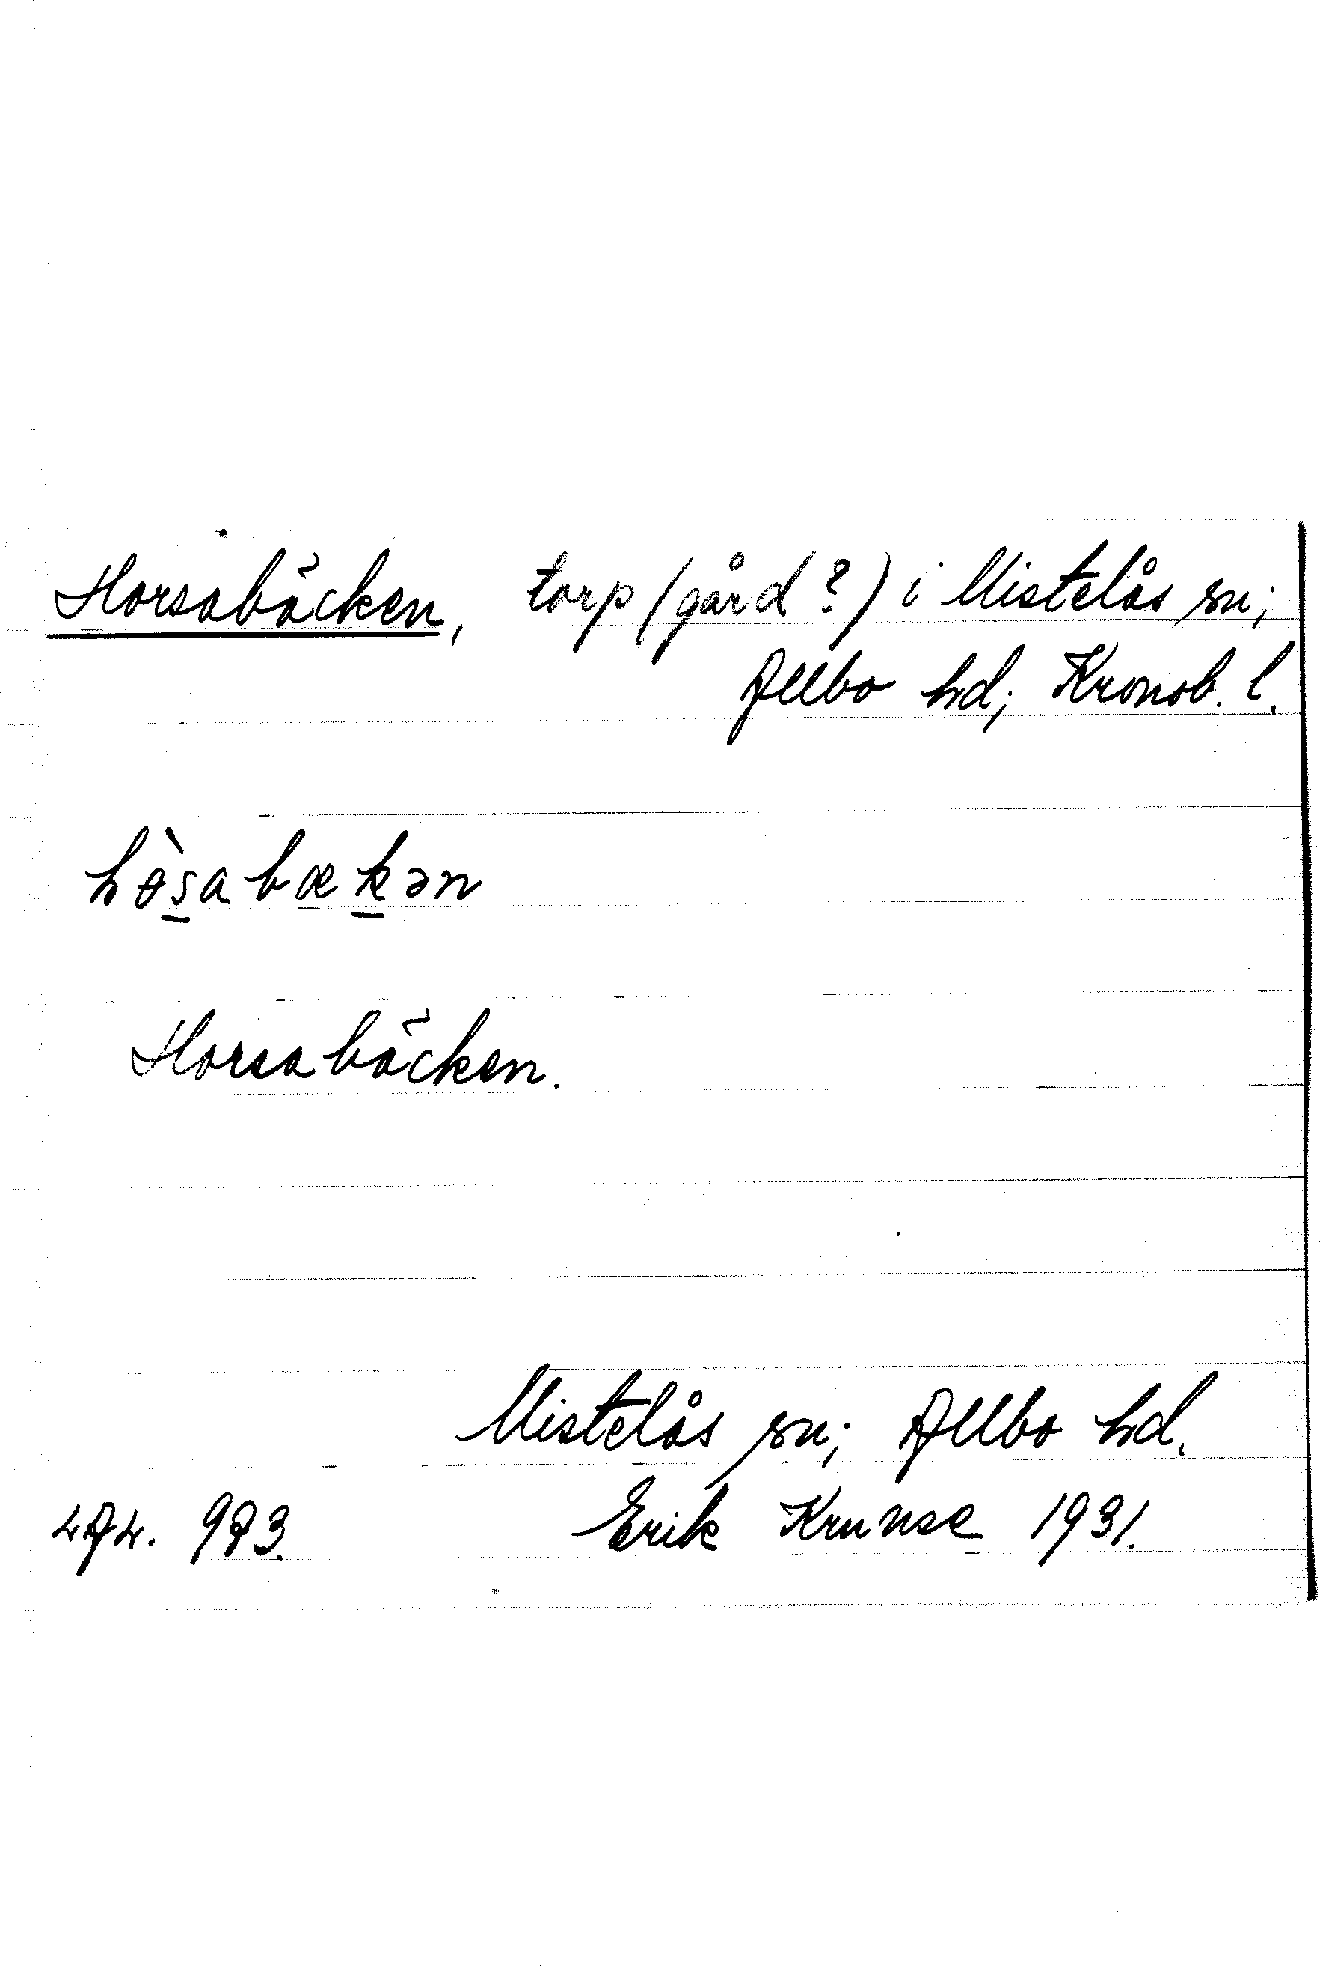 Horsabäcken, torp (gård?) i Mistelås sn;
Allbo hd; Kronob. l.
hɵ̀sabækən
Horsabäcken.
Mistelås sn; Allbo hd.
973. Erik Krunse 1931.